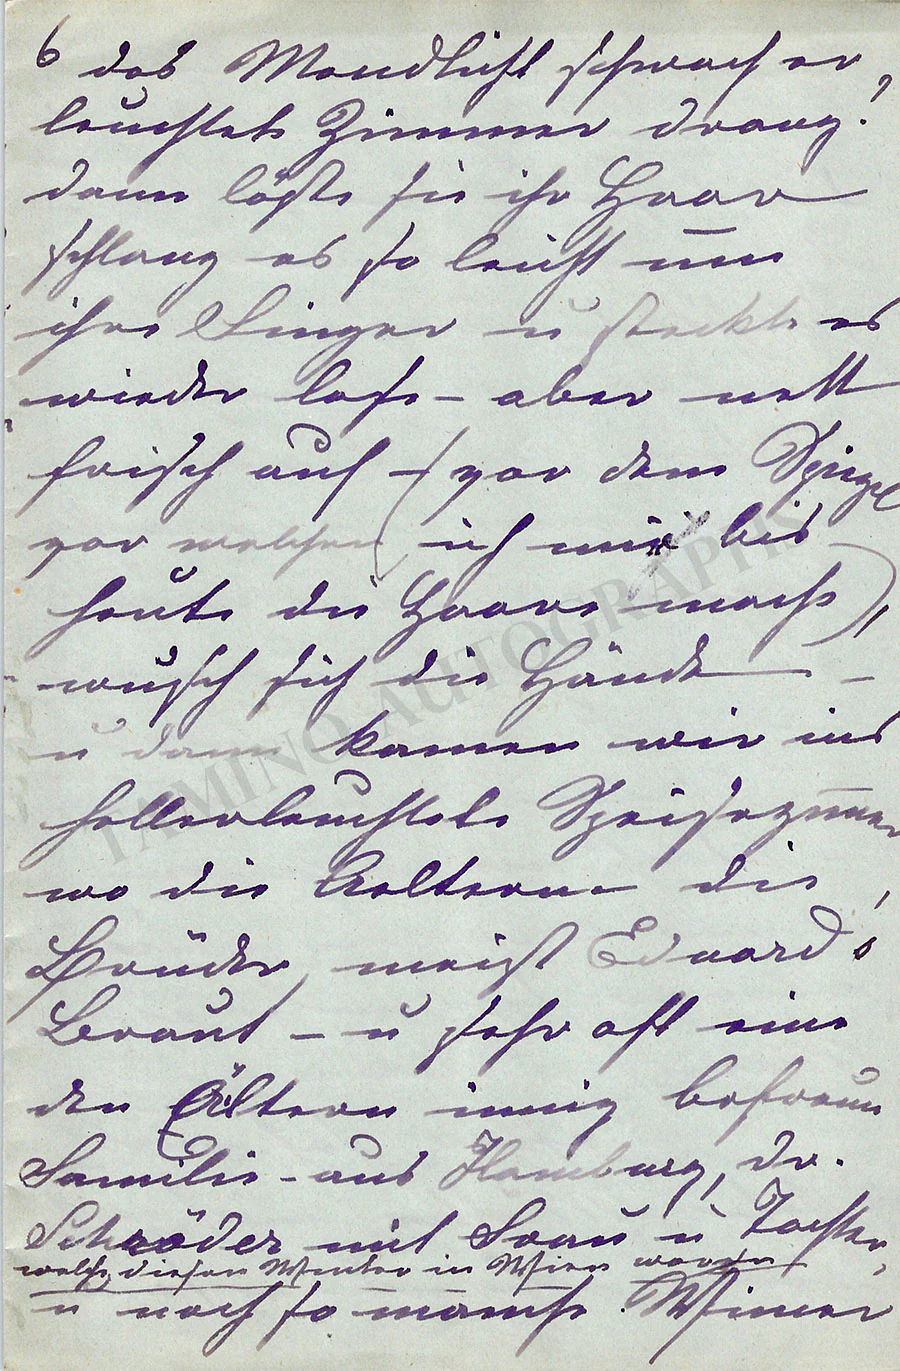 6 das Mondlicht schwach er-
leuchtete Zimmer drang!
dann löste sie ihr Haar
schlang es so leicht um
ihre Finger u steckte es
wieder lose – aber nett
frisch auf – (vor dem Spiegel
vor welchen ich mir bis
heute die Haare mache),
wusch sich die Hände –
u dann kamen wir ins
hellerleuchtete Speisezimmer
wo die Aeltern die
Brüder, meist Eduard's
Braut – u sehr oft eine
den Ältern innig befreun
Familie – aus Hamburg, Dr.
Schröder mit Frau u Tochter,
welche diesen Winter in Wien waren
u noch so manche Wiener
TAMINO AUTOGRAPHS